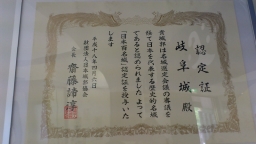 認定証
岐阜城殿
貴城郭は名城選定会議の審議を
経て日本を代表する歴史的名城
であると認められました よって
「日本百名城」認定証を授与いた
します
平成十八年四月六日
財団法人日本城郭協会
会長